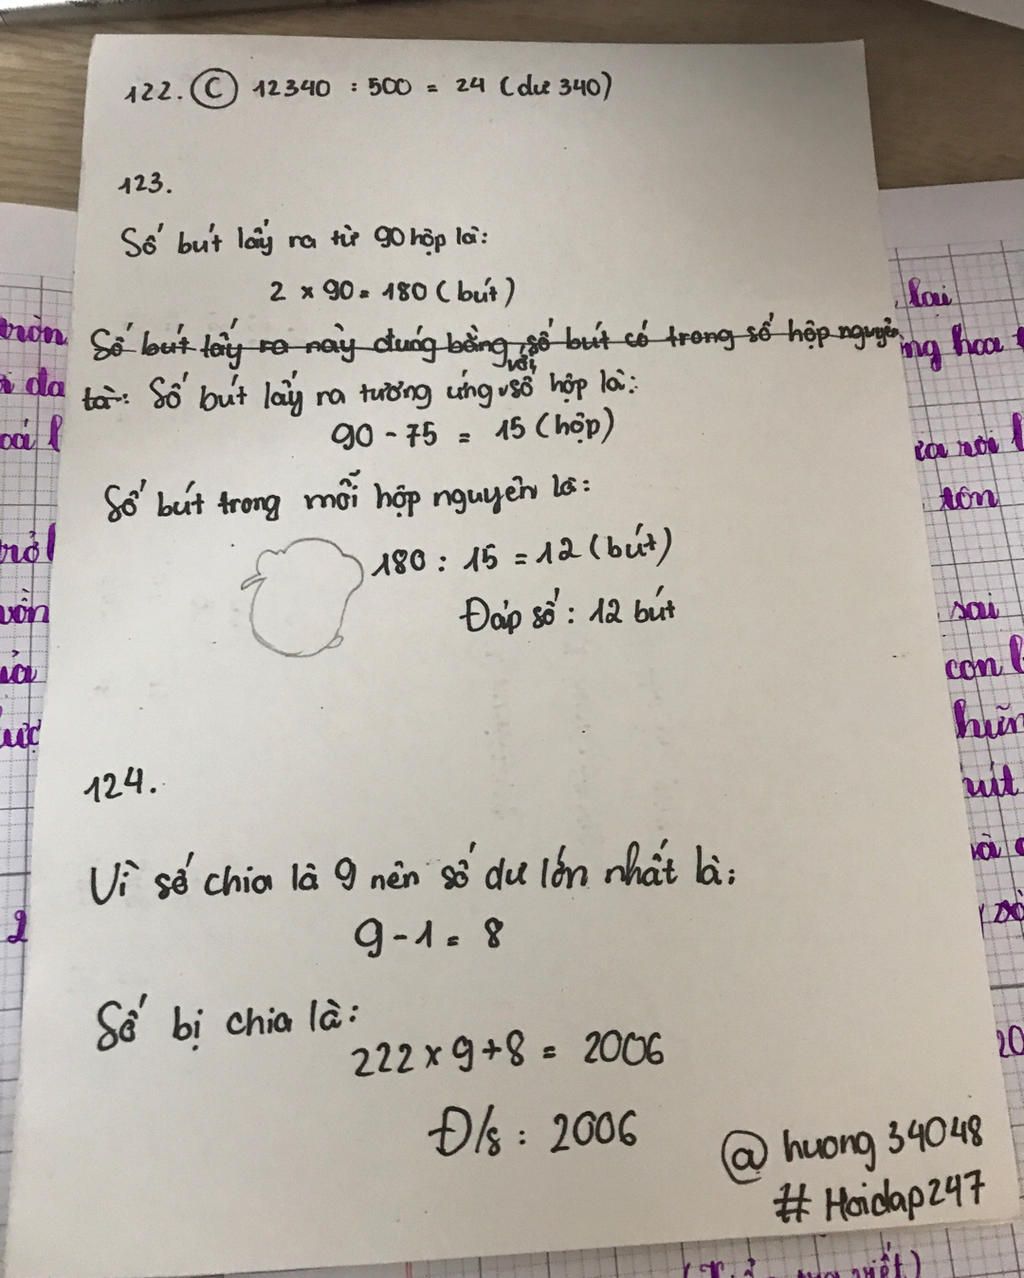 122. C 12340 : 500 = 24 (dư 340)
123.
Số bút lấy ra từ 90 hộp là:
2 x 90 = 180 (bút)
Số bút lấy ra này đúng bằng số bút có trong số hộp nguyên
là: Số bút lấy ra tương ứng với số hộp là:
90 - 75 = 15 (hộp)
Số bút trong mỗi hộp nguyên là:
180 : 15 = 12 (bút)
Đáp số : 12 bút
124.
Vì số chia là 9 nên số dư lớn nhất là:
9 - 1 = 8
Số bị chia là:
222 x 9 + 8 = 2006
Đ/s : 2006
@ huong 34048
# Hoidap247
lại
hoa
da
rồi
sai
con
20
2